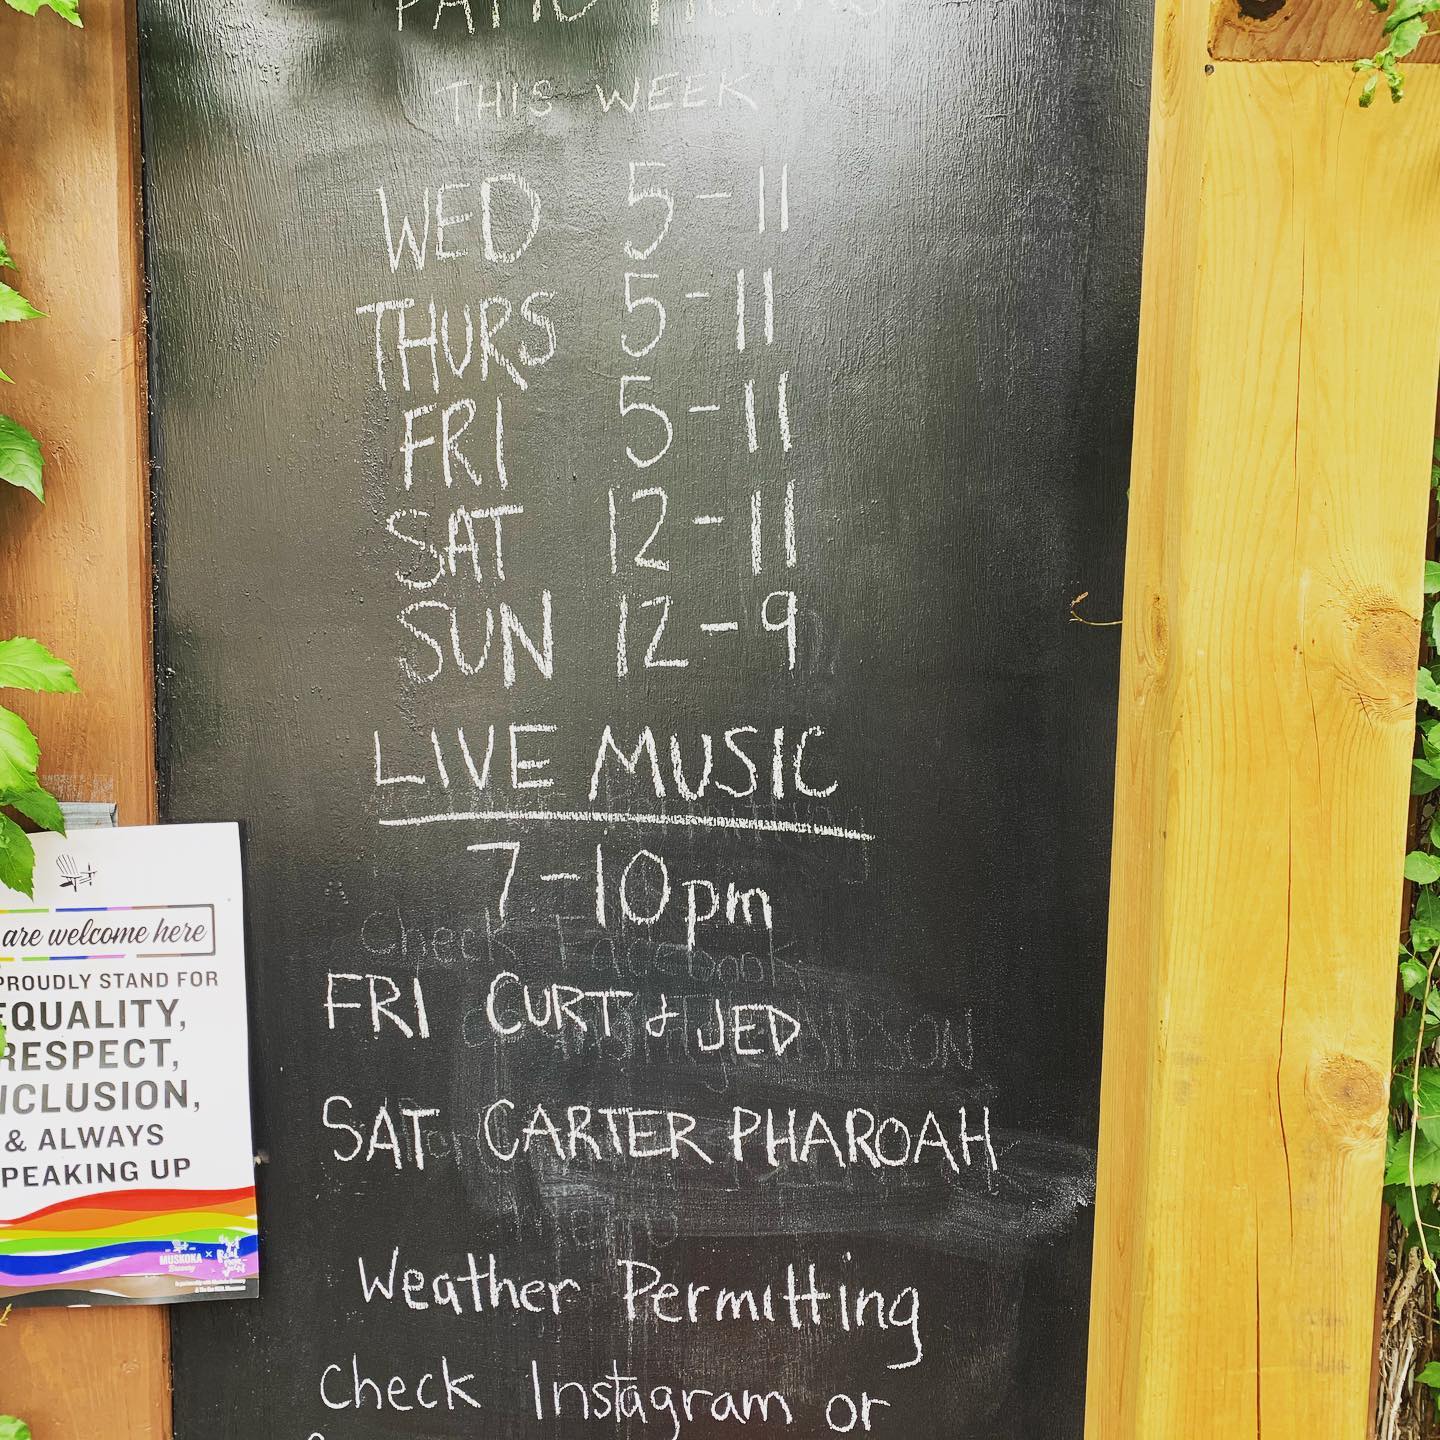 PATIO HOURS
THIS WEEK
WED 5-11
THURS 5-11
FRI 5-11
SAT 12-11
SUN 12-9
LIVE MUSIC
7-10pm
Check Facebook
FRI CURT & JED
SAT CARTER PHAROAH
Weather Permitting
Check Instagram or
are welcome here
PROUDLY STAND FOR
EQUALITY,
RESPECT,
NCLUSION,
& ALWAYS
PEAKING UP
MUSKOKA
Brewery